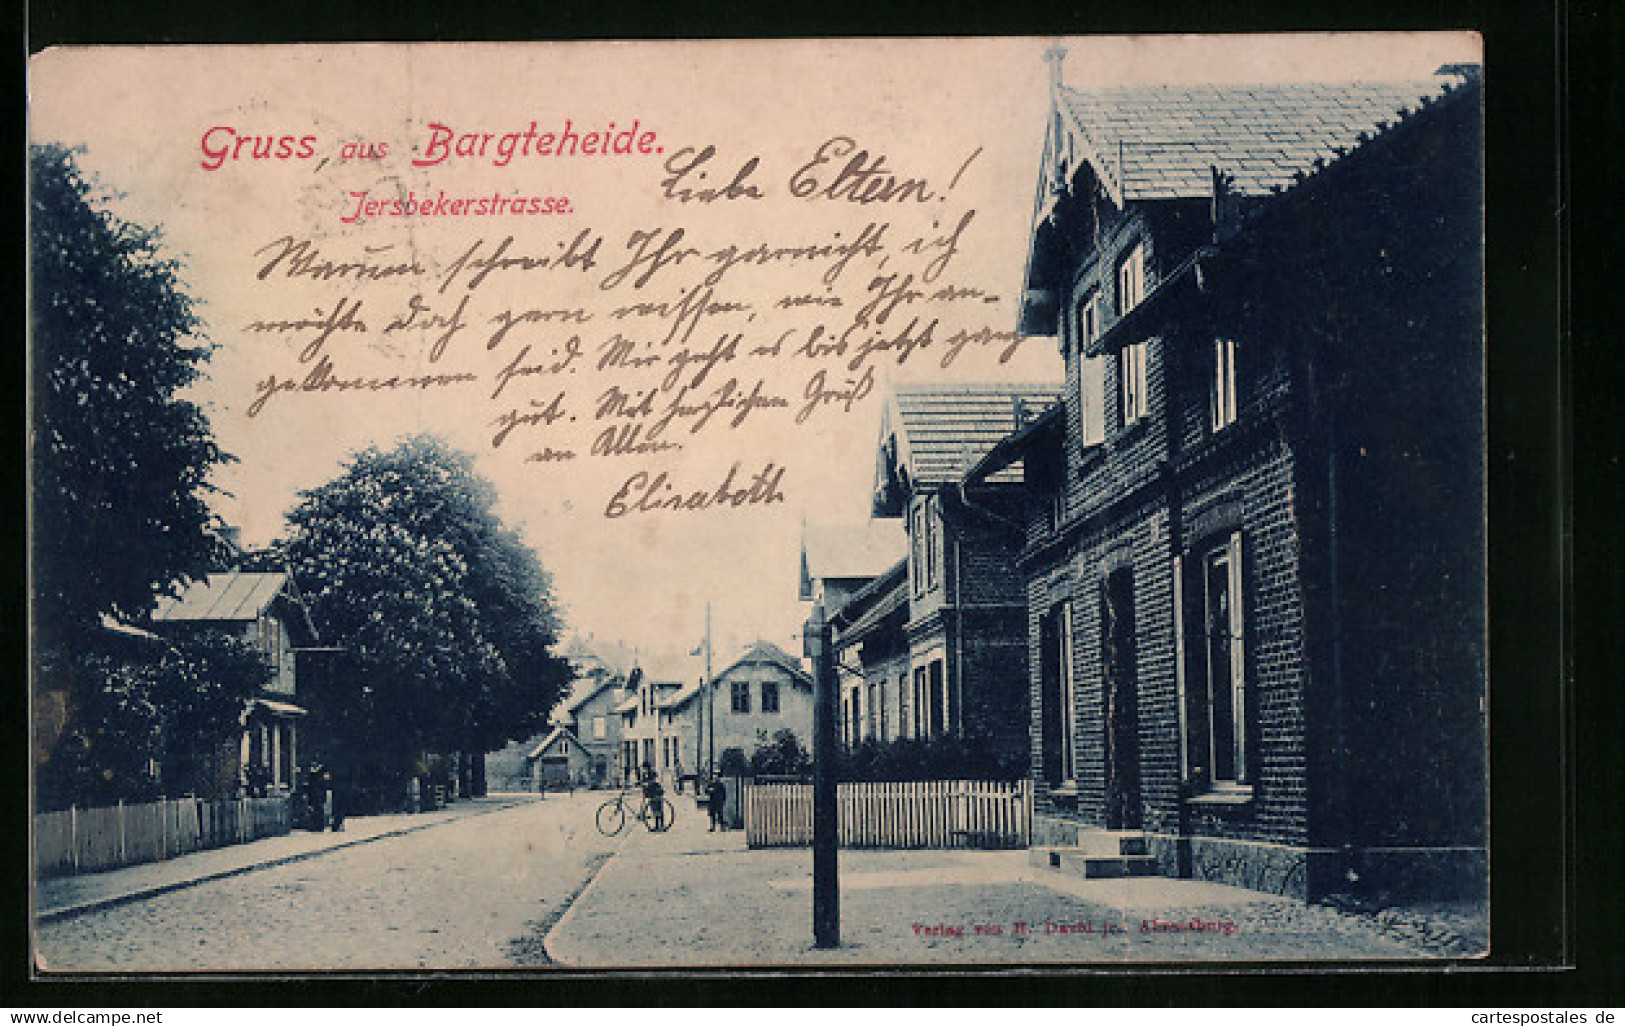 Gruss aus Bargteheide.
Jersbekerstrasse.
Liebe Eltern!
Warum schreibt Ihr garnicht, ich
möchte doch gern wissen, wie Ihr an-
gekommen seid. Mir geht es bis jetzt ganz
gut. Mit herzlichem Gruß
an Allen.
Elisabeth
Verlag von H. jr. Ahrensburg.
cartespostales de